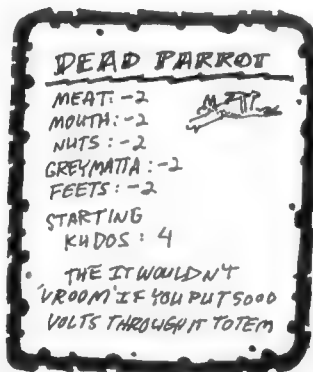 DEAD PARROT
MEAT: -2
MOUTH: -2
NUTS: -2
GREYMATTA: -2
FEETS: -2
STARTING
KUDOS: 4
THE IT WOULDN'T
'VROOM' IF YOU PUT 5000
VOLTS THROUGH IT TOTEM